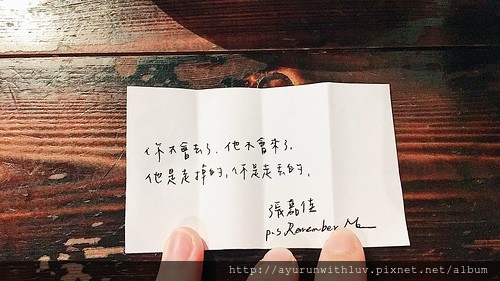 你不會去了.他不會來了.
他是走掉的,你是走丟的.
張嘉佳
p.s. Remember Me
http://ayurunwithluv.pixnet.net/album